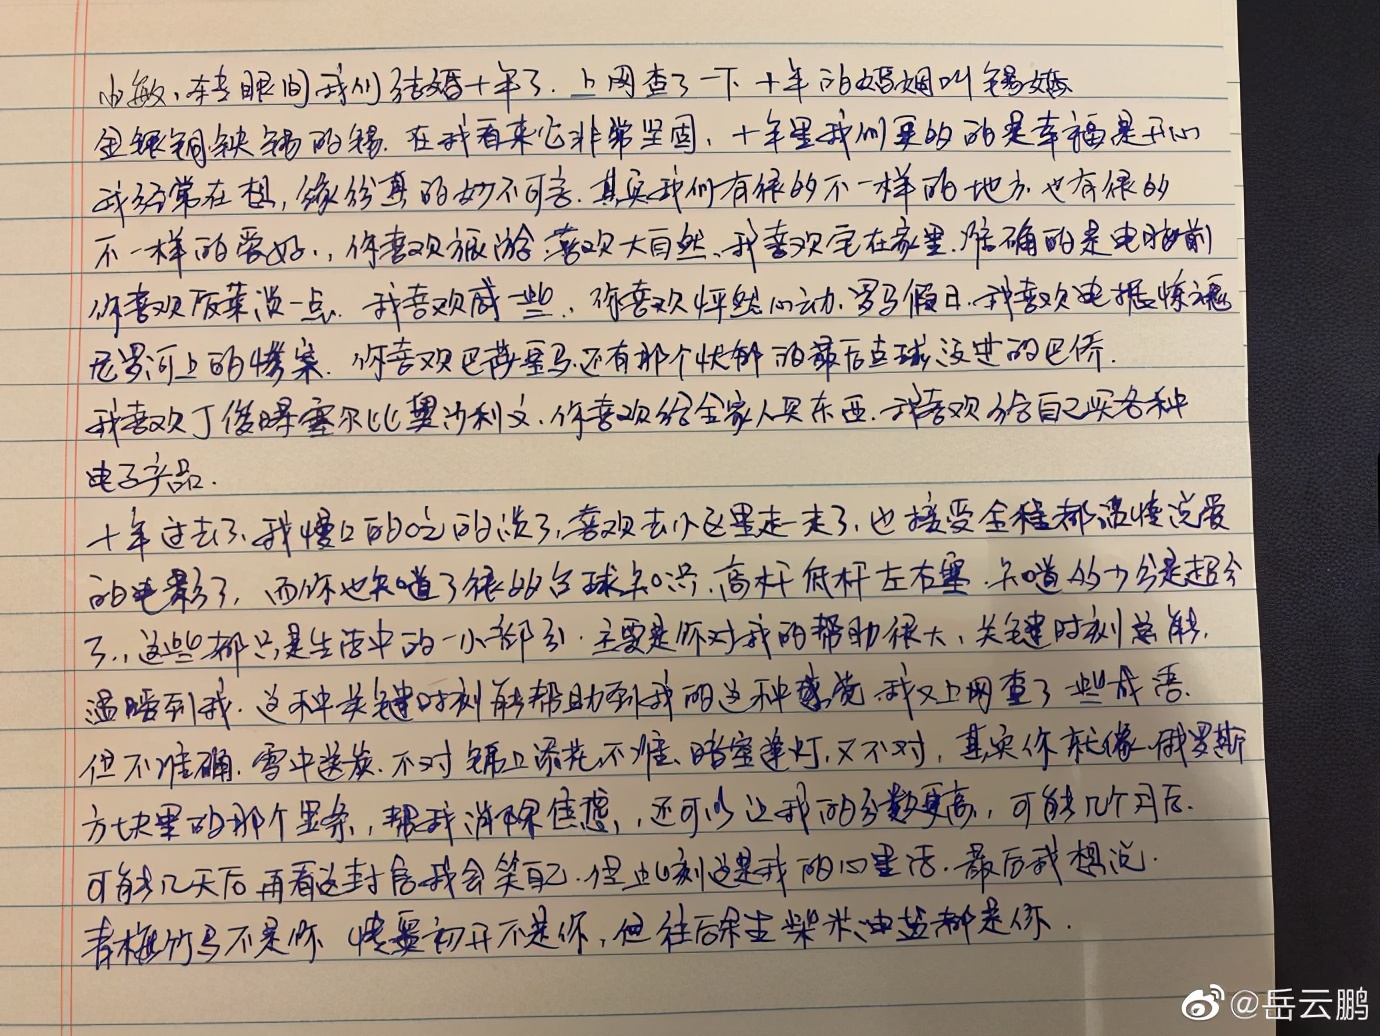 小敏，转眼间我们结婚十年了．上网查了一下十年的婚姻叫锡婚
金银铜铁锡的锡．在我看来它非常坚固，十年里我们更多的是幸福是开心
我经常在想，缘份真的妙不可言．其实我们有很多不一样的地方，也有很多
不一样的爱好，你喜欢旅游、喜欢大自然、我喜欢宅在家里．准确的是电脑前
你喜欢饭菜淡一点．我喜欢咸一些，你喜欢怦然心动．罗马假日．我喜欢电锯惊魂
尼罗河上的惨案．你喜欢巴萨皇马．还有那个忧郁的最后点球没进的巴乔．
我喜欢丁俊晖塞尔比奥沙利文．你喜欢给全家人买东西．我喜欢给自己买各种
电子产品．
十年过去了，我慢口的吃的淡了，喜欢去小区里走一走了，也接受全程都温情说爱
的电影了，而你也知道了很多台球知识．高杆低杆左右塞．知道多少分是超分
了．，这些都只是生活中的一小部分．主要是你对我的帮助很大，关键时刻总能
温暖到我．这种关键时刻能帮助到我的这种感觉．我又上网查了一些成语．
但不准确．雪中送炭．不对 锦上添花，不准、暗室逢灯，又不对，其实你就像俄罗斯
方块里的那个竖条，帮我消除焦虑，还可以让我的分数更高，可能几个月后．
可能几天后再看这封信我会笑自己．但此刻这是我的心里话．最后我想说．
青梅竹马不是你 情窦初开不是你，但往后余生柴米油盐都是你．
@岳云鹏